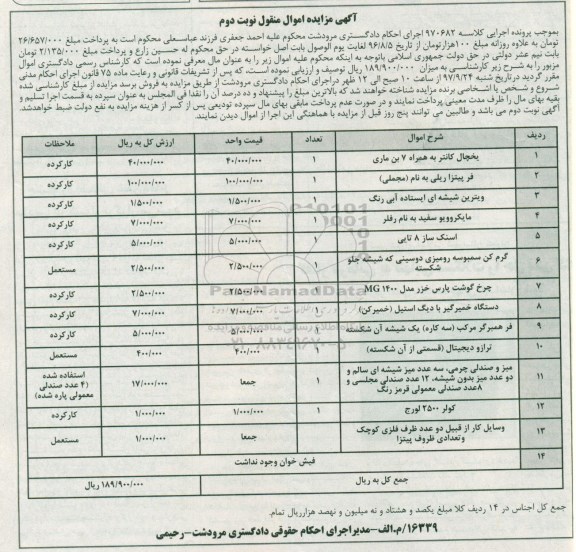 آگهی مزایده اموال منقول نوبت دوم
بموجب پرونده اجرایی کلاسه ۹۷۰۶۸۲ اجرای احکام دادگستری مرودشت محکوم علیه احمد جعفری فرزند عباسعلی محکوم است به پرداخت مبلغ ۲۶/۶۵۷/۰۰۰
تومان به علاوه روزانه مبلغ ۱۰۰هزارتومان از تاریخ ۹۶/۸/۵ لغایت یوم الوصول بابت اصل خواسته در حق محکوم له حسین زارع و پرداخت مبلغ ۲/۱۳۵/۰۰۰ تومان
بابت نیم عشر دولتی در حق دولت جمهوری اسلامی باتوجه به اینکه محکوم علیه اموال زیر را به عنوان مال معرفی نموده است که کارشناس رسمی دادگستری اموال
مزبور را به شرح زیر کارشناسی به میزان ۱۸۹/۹۰۰/۰۰۰ ریال توصیف و ارزیابی نموده است، که پس از تشریفات قانونی و رعایت ماده ۷۵ قانون اجرای احکام مدنی
مقرر گردید درتاریخ شنبه ۹۷/۹/۲۴ از ساعت ۱۰ صبح الی ۱۲ ظهر در اجرای احکام دادگستری مرودشت از طریق مزایده به فروش برسد مزایده از مبلغ کارشناسی شده
شروع و شخص یا اشخاصی برنده مزایده شناخته خواهند شد که بالاترین مبلغ را پیشنهاد و ده درصد آن را نقدا فی المجلس به عنوان سپرده به قسمت اجرا تسلیم و
بقیه بهای مال را ظرف مدت معینی پرداخت نمایند و در صورت عدم پرداخت مابقی بهای مال سپرده تودیعی پس از کسر هزینه مزایده به نفع دولت ضبط خواهدشد.
آگهی نوبت دوم می باشد و طالبین می توانند پنج روز قبل از مزایده با هماهنگی این اجرا از اموال دیدن نمایند.
ردیف شرح اموال تعداد قیمت واحد ارزش کل به ریال ملاحظات
۱ یخچال کانتر به همراه ۷ بن ماری ۱ ۴۰/۰۰۰/۰۰۰ ۴۰/۰۰۰/۰۰۰ کارکرده
۲ فر پیتزا ریلی به نام (مجملی) ۱ ۱۰۰/۰۰۰/۰۰۰ ۱۰۰/۰۰۰/۰۰۰ کارکرده
۳ ویترین شیشه ای ایستاده آبی رنگ ۱ ۱/۵۰۰/۰۰۰ ۱/۵۰۰/۰۰۰ کارکرده
۴ مایکروویو سفید به نام رفلر ۱ ۷/۰۰۰/۰۰۰ ۷/۰۰۰/۰۰۰ کارکرده
۵ اسنک ساز ۸ تایی ۱ ۵/۰۰۰/۰۰۰ ۵/۰۰۰/۰۰۰ کارکرده
۶ گرم کن سمبوسه رومیزی دوسینی که شیشه جلو شکسته ۱ ۲/۵۰۰/۰۰۰ ۲/۵۰۰/۰۰۰ مستعمل
۷ چرخ گوشت پارس خزر مدل MG ۱۴۰۰ ۱ ۲/۵۰۰/۰۰۰ ۲/۵۰۰/۰۰۰ کارکرده
۸ دستگاه خمیرگیر با دیگ استیل (خمیرکن) ۱ ۷/۰۰۰/۰۰۰ ۷/۰۰۰/۰۰۰ کارکرده
۹ فر همبرگر مرکب (سه کاره) یک شیشه آن شکسته ۱ ۵/۰۰۰/۰۰۰ ۵/۰۰۰/۰۰۰ کارکرده
۱۰ ترازو دیجیتال (قسمتی از آن شکسته) ۱ ۴۰۰/۰۰۰ ۴۰۰/۰۰۰ مستعمل
۱۱ میز و صندلی چرمی، سه عدد میز شیشه ای سالم و دو عدد میز بدون شیشه، ۱۲ عدد صندلی مجلسی و ۸عدد صندلی معمولی قرمز رنگ جمعا ۱۷/۰۰۰/۰۰۰ استفاده شده (۴ عدد صندلی معمولی پاره شده)
۱۲ کولر ۲۵۰۰ لورچ ۱ ۱/۰۰۰/۰۰۰ ۱/۰۰۰/۰۰۰ کارکرده
۱۳ وسایل کار از قبیل دو عدد ظرف فلزی کوچک وتعدادی ظروف پیتزا جمعا ۱/۰۰۰/۰۰۰ مستعمل
۱۴ فیش خوان وجود نداشت
جمع کل به ریال ۱۸۹/۹۰۰/۰۰۰ ریال
جمع کل اجناس در ۱۴ ردیف کلا مبلغ یکصد و هشتاد و نه میلیون و نهصد هزارریال تمام.
۱۶۳۳۹/م.الف-مدیراجرای احکام حقوقی دادگستری مرودشت-رحیمی
ParsNamadData